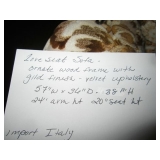 Love seat Sofa -
ornate wood frame with
gild finish - velvet upholstery
57" W x 36" D - 38" H
24" arm ht 20" seat ht
import Italy